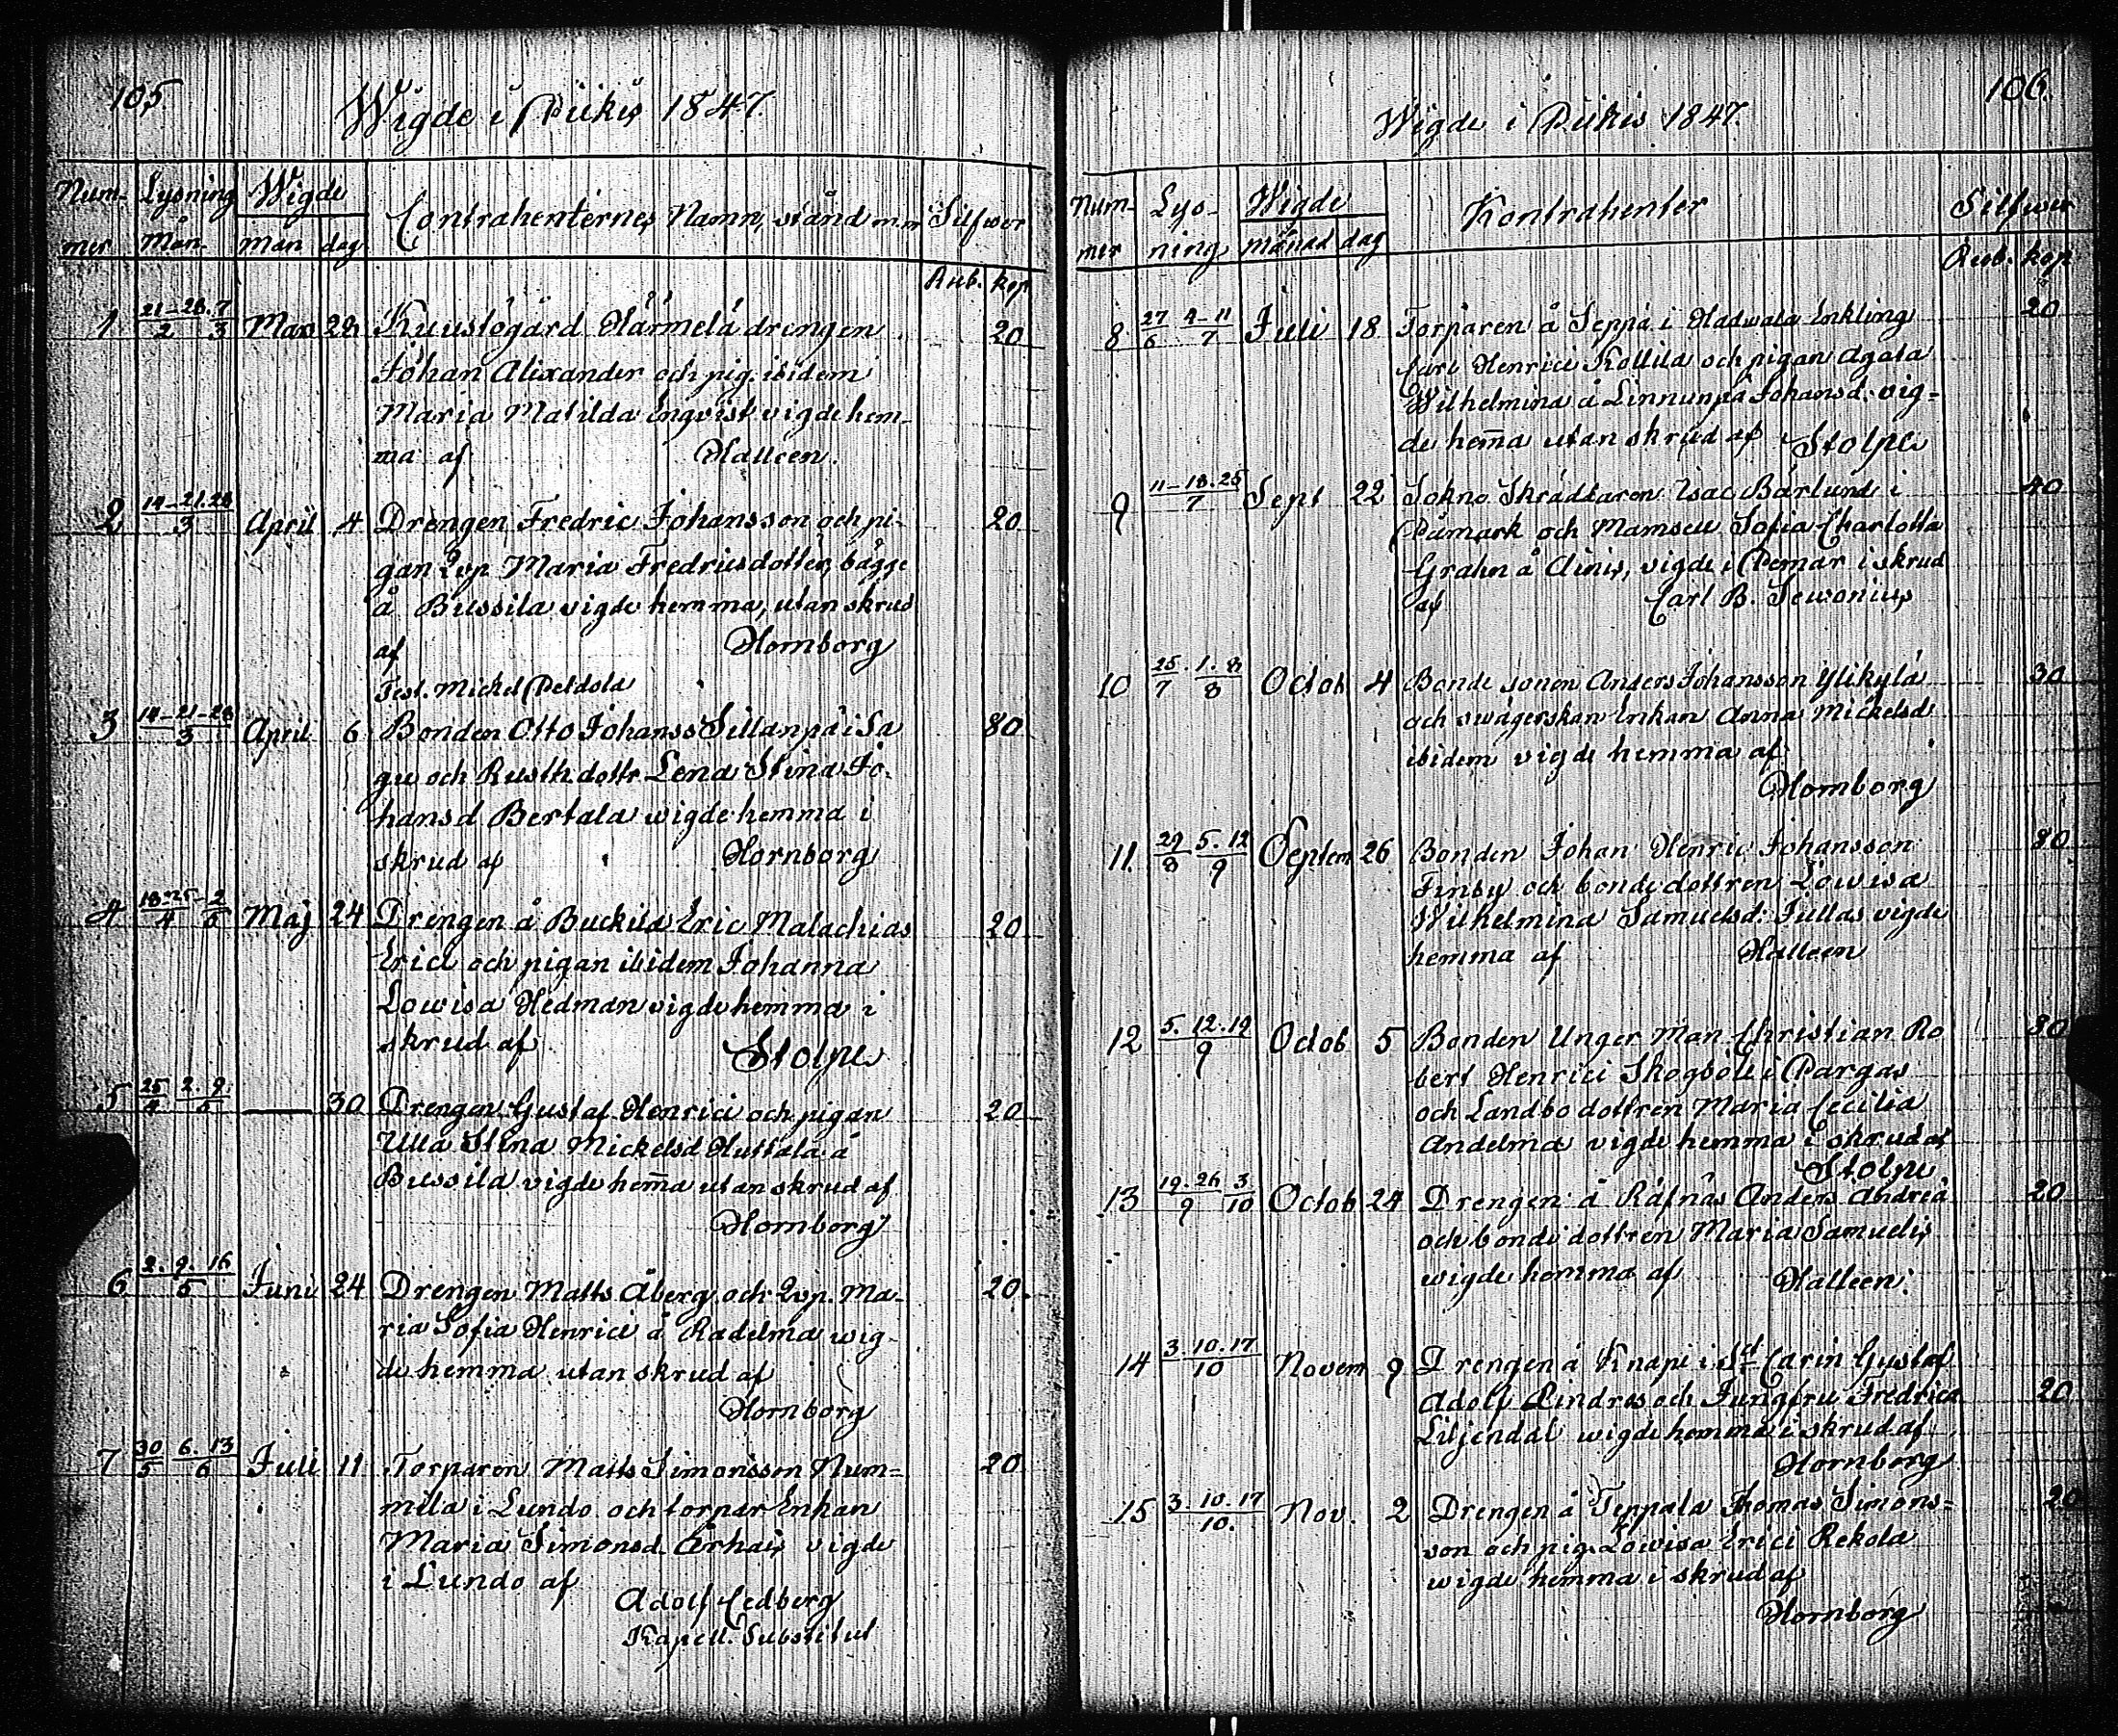 105
Wigde i Piikis 1847.
Num- Lysning Wigde Contrahenternes Namn, stånd m.m Silfwer
mer Mån. Mån dag
Rub. kop
1 21-28. 7 / 2 3 Mars 28 Kuustögård Härmälä drengen 20
Johan Alexander och pig. ibidem
Maria Matilda Engvist vigde hem-
ma af Halleen.
2 14-21.28 / 3 April 4 Drengen Fredric Johansson och pi- 20
gan Maria Fredricsdotter, bägge
å Bussila vigde hemma, utan skrud
af Hornborg
Test. Mickel Peldola
3 14-21-28 / 3 April 6 Bonden Otto Johanss Sillanpä i Sa 80
gu och Rusth.dottr. Lena Stina Jo-
hansd Bertala wigde hemma i
skrud af Hornborg
4 18-25-2 / 4 5 Maj 24 Drengen å Buckila Eric Malachias 20
Erici och pigan ibidem Johanna
Lowisa Hedman vigde hemma i
skrud af Stolpe
5 25 2. 9. / 4 5 — 30 Drengen Gustaf Henrici och pigan 20
Ulla Stina Mickelsd Huttala å
Bussila vigde hem̄a utan skrud af
Hornborg
6 2. 9. 16 / 5 Juni 24 Drengen Matts Åberg och Ma- 20.
ria Sofia Henrici å Radelma wig-
de hemma utan skrud af
Hornborg
7 30 6. 13 / 5 6 Juli 11 Torparen Matts Simonsson Num= 20
mila i Lundo och torpar Enkan
Maria Simonsd. vigde
i Lundo af
Adolf Cedberg
Kapell. Substitut
106.
Wigde i Piikis 1847.
Num- Lys- Wigde Kontrahenter Silfwer
mer ning månad dag Rub. kop
8 27 4-11 / 6 7 Juli 18 Torparen å Seppä i Hadwala Enkling 20
Carl Henrici Kollila och pigan Agata
Wilhelmina å Linnunpä Johansd. vig=
de hem̄a utan skrud af Stolpe
9 11-18.25 / 7 Sept 22 Sokne Skräddaren Isac Bärlund i 40
Pämark och Mamsell Sofia Charlotta
Grahn å Ainis, vigde i Pemar i skrud
af Carl B. Sewonius
10 25. 1. 8 / 7 8 Octob 4 Bonde sonen Anders Johansson Ylikylä 30
och swägerskan Enkan Anna Mickelsd
ibidem vigde hemma af
Hornborg
11. 29 5. 12 / 8 9 Septem 26 Bonden Johan Henric Johansson 80
Finby och bonde dottren Lowisa
Wilhelmina Samuelsd: Jullas vigde
hemma af Halleen
12 5. 12. 19 / 9 Octob 5 Bonden Unger Man Christian Ro 80
bert Henrici Skogböle i Pargas
och Landbo dottren Maria Cecilia
Andelma vigde hemma i skrud af
Stolpe
13 19. 26 3 / 9 10 Octob 24 Drengen å Räfnäs Anders Andreä 20
och bonde dottren Maria Samuelis
wigde hemma af Halleen.
14 3. 10. 17 / 10 Novem 9 Drengen å Knape i St Carin Gustaf
Adolf Lindros och Jungfru Fredrica 20
Liljendal wigde hemma i skrud af
Hornborg
15 3. 10. 17 / 10. Nov. 2 Drengen å Teppala Thomas Simons= 20
son och pig. Lowisa Erici Rekola
wigde hemma i skrud af
Hornborg